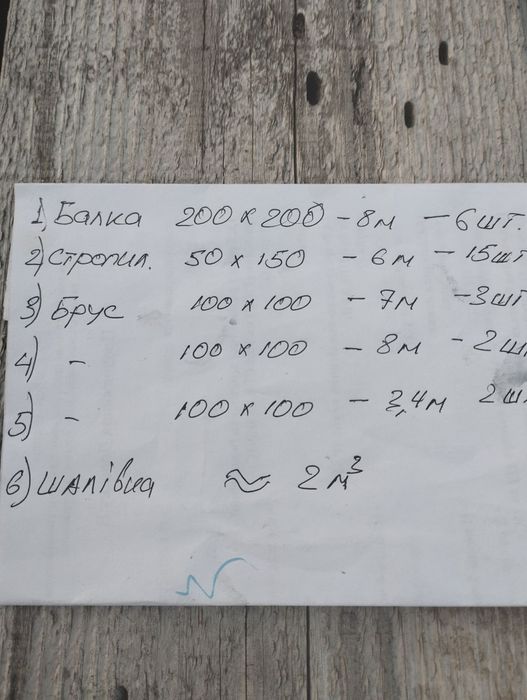 1) Балка 200 x 200 - 8м - 6 шт.
2) Стропил. 50 x 150 - 6м - 15шт
3) Брус 100 x 100 - 7м - 3шт
4) - 100 x 100 - 8м - 2ш
5) - 100 x 100 - 3,4м 2ш
6) шалівка ≈ 2м³